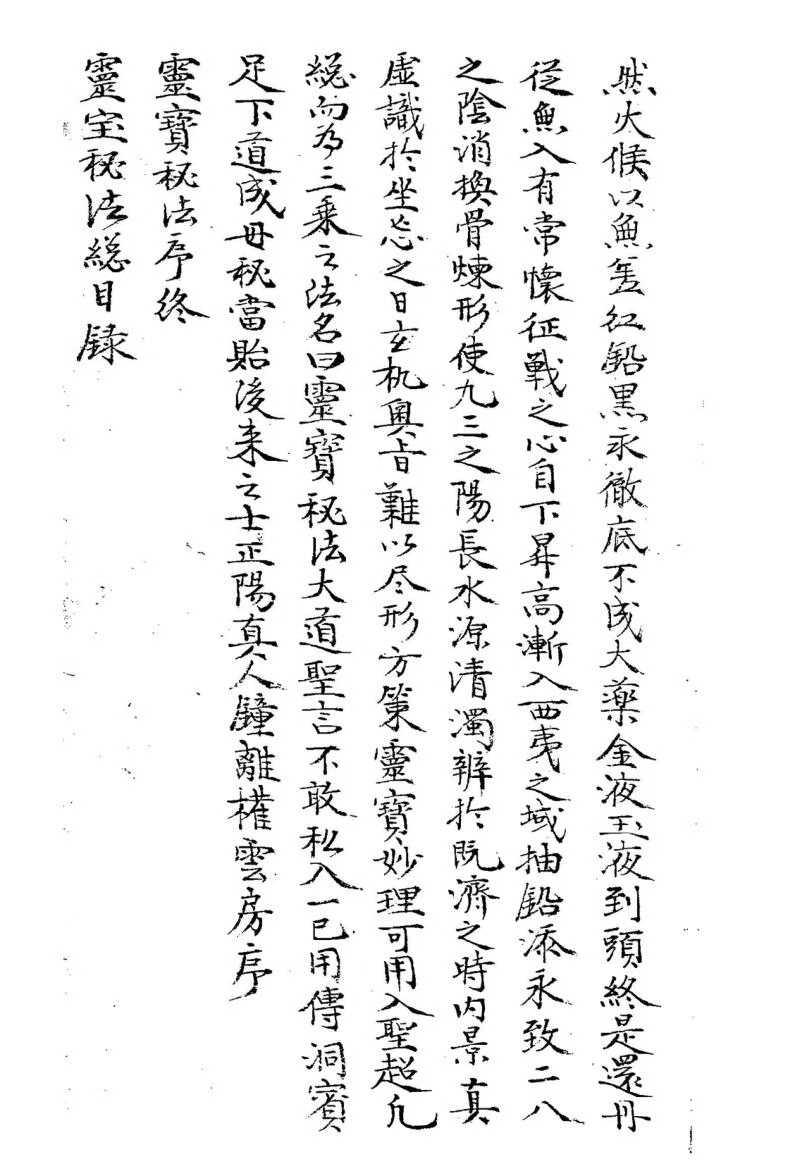 然火候以無差红鉛黒永徹底不成大藥金液玉液到頭終是還丹
從無入有常懷征戰之心自下昇高漸入西夷之域抽鉛添永致二八
之陰消換骨煉形使九三之陽長水源清濁辨於既濟之時内景真
虛識於坐忘之日玄机奥旨難以尽形方策靈寳妙理可用入聖超凢
総而為三乗之法名曰靈寳秘法大道聖言不敢私入一已用傳洞賓
足下道成毋秘當貽後来之士正陽真人鐘離權雲房序
靈寳秘法序终
靈宝秘法総目録